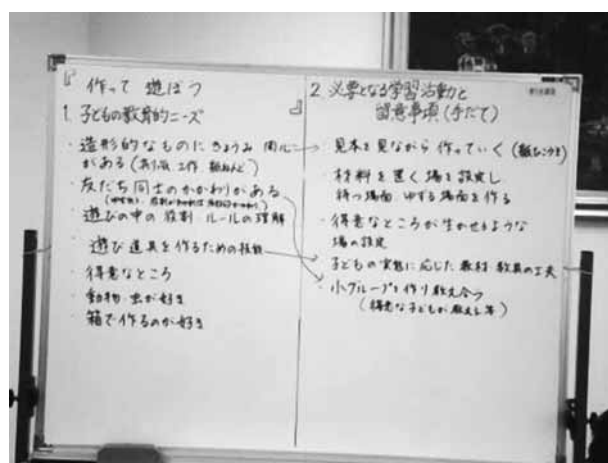 『作って 遊ぼう
』
1. 子どもの教育的ニーズ
・造形的なものにきょうみ 関心
がある(おり紙、工作、紙ねんど)
・友だち同士のかかわりがある
・遊びの中の役割・ルールの理解
・遊び道具を作るための技能
・得意なところ
・動物・虫が好き
・箱で作るのが好き
2. 必要となる学習活動と
留意事項(手だて)
・見本を見ながら作っていく(紙ひこうき)
・材料を置く場を設定し
待つ場面 ゆずる場面を作る
・得意なところが生かせるような
場の設定
・子どもの実態に応じた教材・教具の工夫
・小グループを作り教え合う
(得意な子どもが教える等)